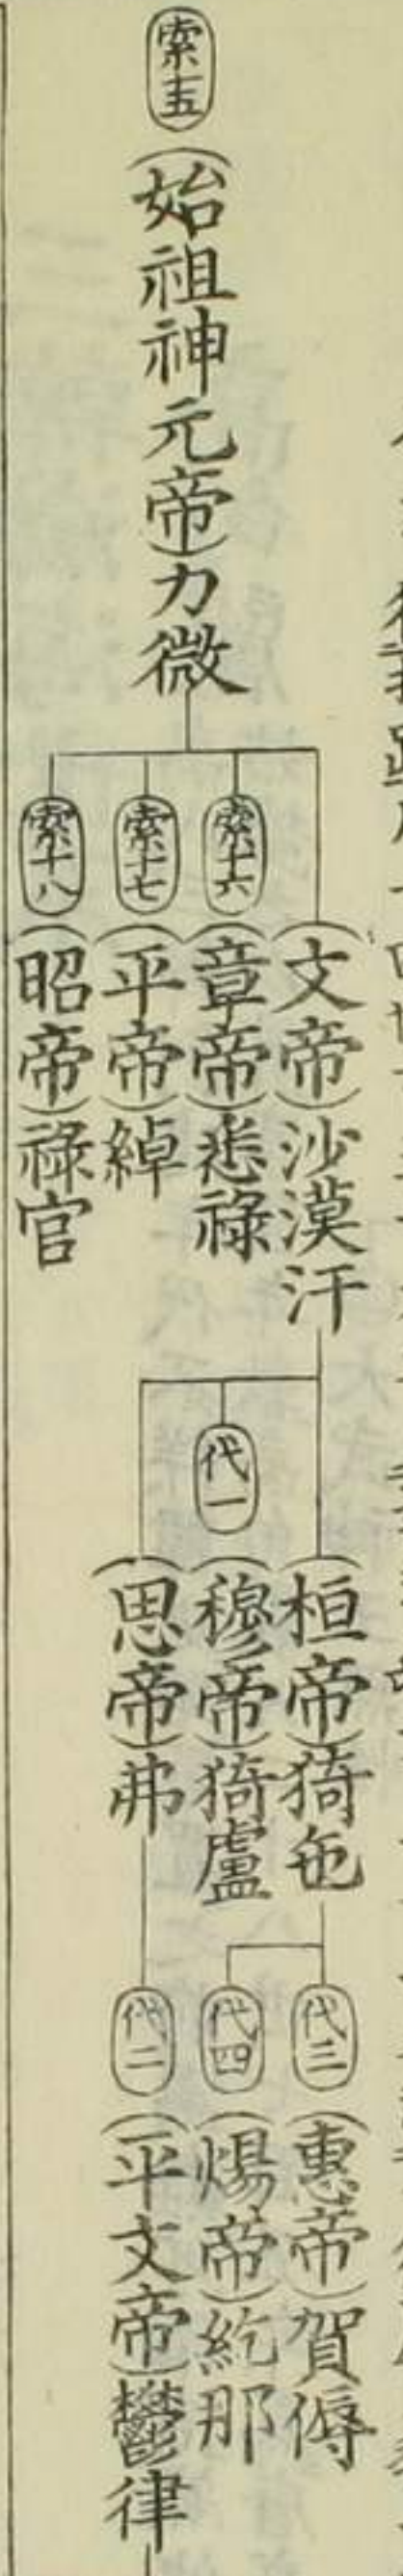 索十五
(始祖神元帝)力微
(文帝)沙漠汗
索十六
(章帝)悉祿
索十七
(平帝)綽
索十八
(昭帝)祿官
(桓帝)猗㐌
代一
(穆帝)猗盧
(思帝)弗
代三
(惠帝)賀傉
代四
(煬帝)紇那
代二
(平文帝)鬱律